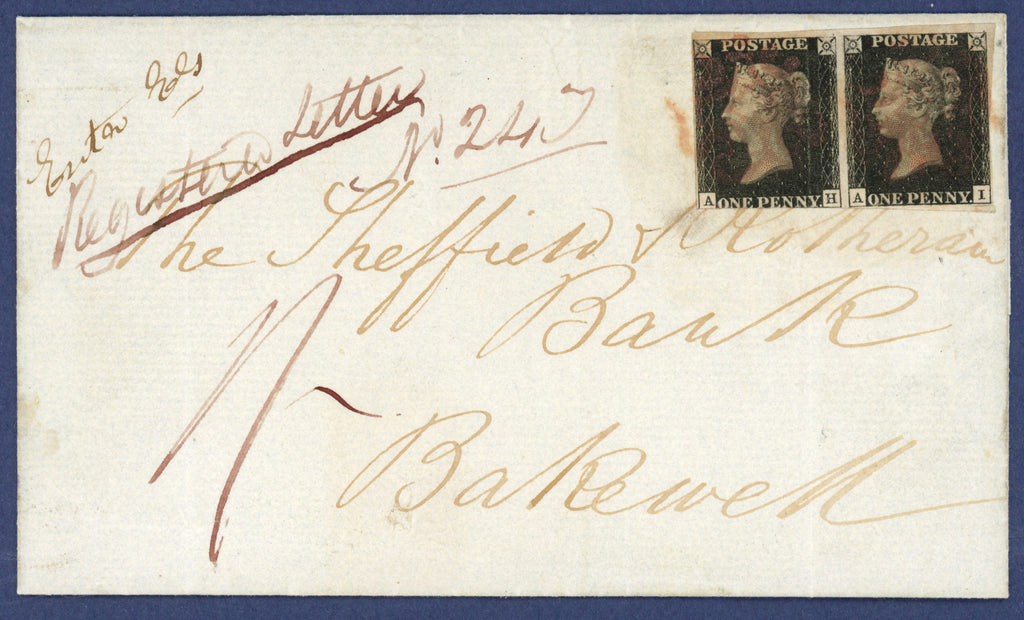 POSTAGE
A ONE PENNY H
POSTAGE
A ONE PENNY I
Registered Letter
No. 247
The Sheffield & Rotheram
Bank
Bakewell